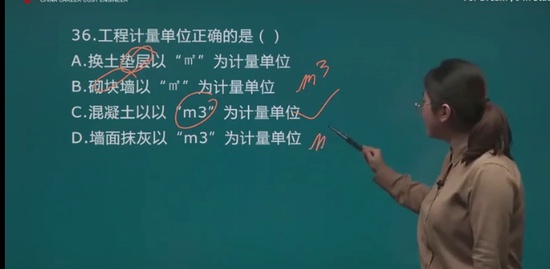 CHINA CAREER COST ENGINEER
36.工程计量单位正确的是（ ）
A.换土垫层以“㎡”为计量单位
B.砌块墙以“㎡”为计量单位 m³
C.混凝土以以“m3”为计量单位
D.墙面抹灰以“m3”为计量单位